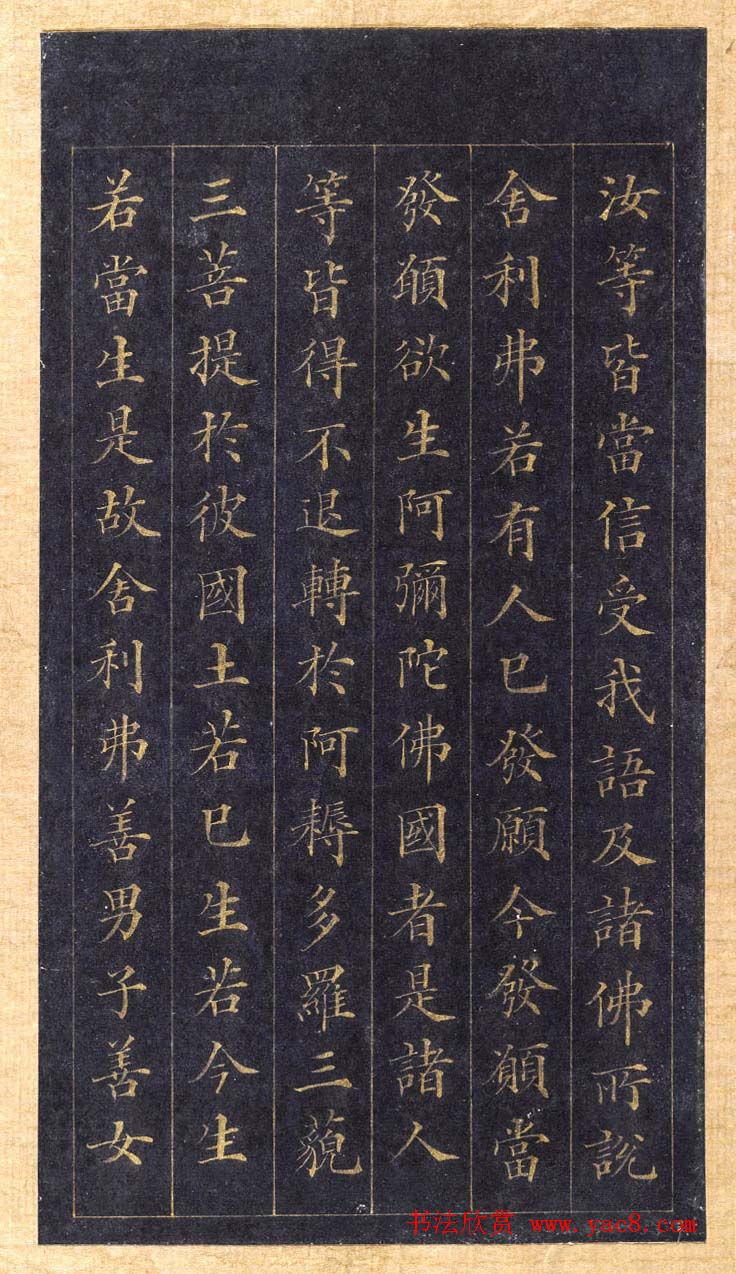 汝等皆當信受我語及諸佛所說
舍利弗若有人已發願今發願當
發願欲生阿彌陀佛國者是諸人
等皆得不退轉於阿耨多羅三藐
三菩提於彼國土若已生若今生
若當生是故舍利弗善男子善女
书法欣赏 www.yac8.com